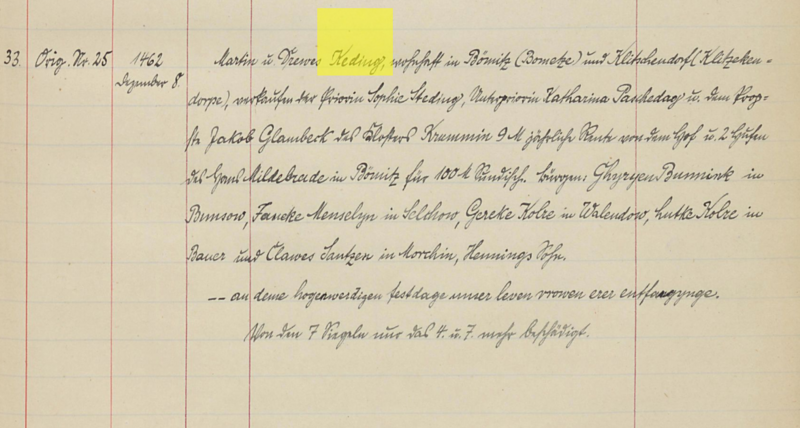 33. Orig. Nr. 25 1462 Martin u Drewes Keding, wohnhaft in Bömitz (Bometze) und Klitschendorf (Klitzeken=
Dezember 8. dorpe), verkaufen der Priorin Sophie Steding, Unterpriorin Katharina Pankedag u. dem Prop=
ste Jakob Glambeck des Klosters Krummin 9 M jährliche Rente von dem Hof u. 2 Hufen
des Hans Mildebrade in Bömitz für 100 M Sundisch. Bürgen: Ghyryen Bunnink in
Bunsow, Fancke Menselyn in Selchow, Gereke Kolze in Walendow, Lutke Kolze in
Bauer und Clawes Santzen in Morchin, Hennings Sohn.
-- an deme hogenwerdigen festdage unser leven vrowen erer entfangynge.
Von den 7 Siegeln nur das 4. u. 7. mehr beschädigt.